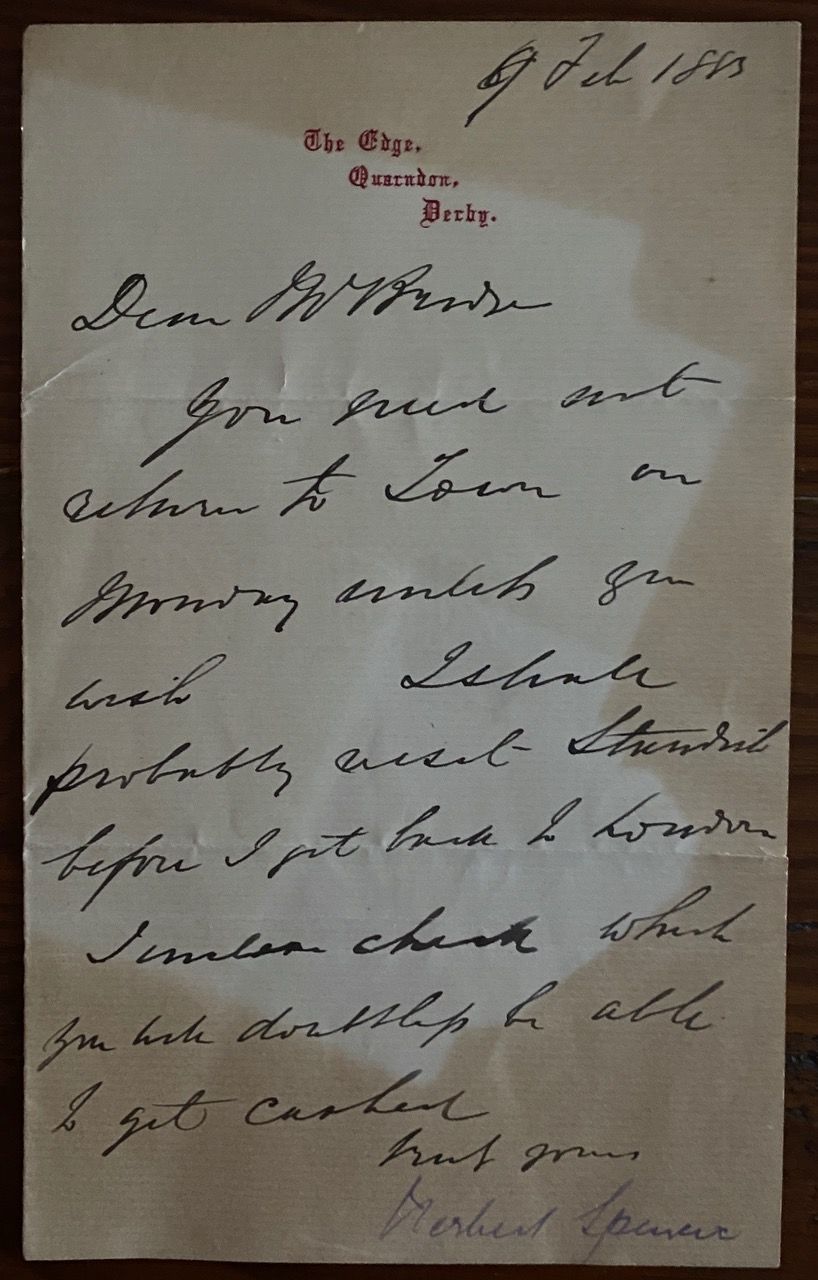 9 Feb 1883
The Edge,
Quarndon,
Derby.
Dear Mr Bridge
You need not
return to Town on
Monday unless you
wish I shall
probably visit Standish
before I get back to London
I enclose check which
you will doubtless be able
to get cashed
truly yours
Herbert Spencer